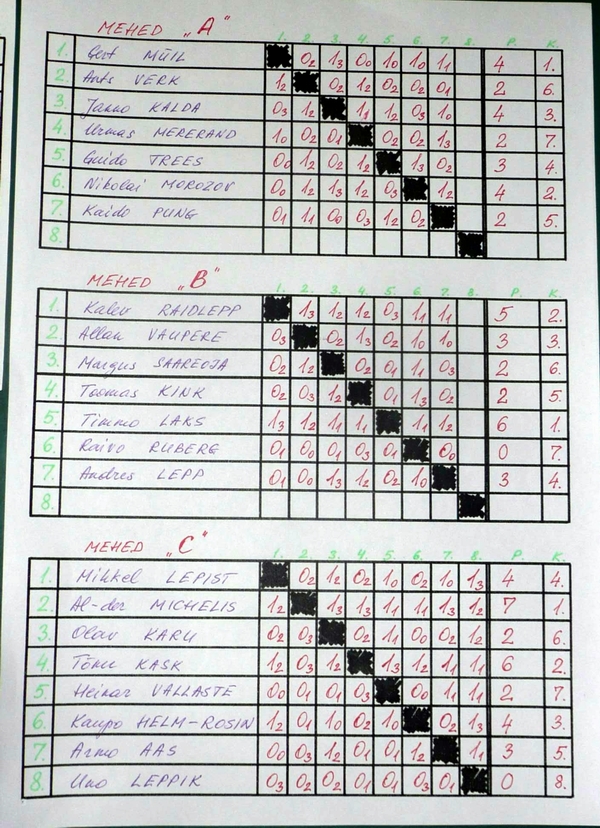 MEHED "A"
1. 2. 3. 4. 5. 6. 7. 8. P. K.
1. Gert MÜIL 0₂ 1₃ 0₀ 1₀ 1₀ 1₁ 4 1.
2. Ants VERK 1₂ 0₂ 1₂ 0₂ 0₂ 0₁ 2 6.
3. Janno KALDA 0₃ 1₂ 1₁ 1₂ 0₃ 1₀ 4 3.
4. Urmas MERERAND 1₀ 0₂ 0₁ 0₂ 0₂ 1₃ 2 7.
5. Guido TREES 0₀ 1₂ 0₂ 1₂ 1₃ 0₂ 3 4.
6. Nikolai MOROZOV 0₀ 1₂ 1₃ 1₂ 0₃ 1₂ 4 2.
7. Kaido PUNG 0₁ 1₁ 0₀ 0₃ 1₂ 0₂ 2 5.
8.
MEHED "B"
1. 2. 3. 4. 5. 6. 7. 8. P. K.
1. Kalev RAIDLEPP 1₃ 1₂ 1₂ 0₃ 1₁ 1₁ 5 2.
2. Allan VAHPERE 0₃ 0₂ 1₃ 0₂ 1₀ 1₀ 3 3.
3. Margus SAAREOJA 0₂ 1₂ 0₂ 0₁ 1₁ 0₃ 2 6.
4. Toomas KINK 0₂ 0₃ 1₂ 0₁ 1₃ 0₂ 2 5.
5. Timmo LAKS 1₃ 1₂ 1₁ 1₁ 1₁ 1₂ 6 1.
6. Raivo RUBERG 0₁ 0₀ 0₁ 0₃ 0₁ 0₀ 0 7.
7. Andres LEPP 0₁ 0₀ 1₃ 1₂ 0₂ 1₀ 3 4.
8.
MEHED "C"
1. 2. 3. 4. 5. 6. 7. 8. P. K.
1. Mihkel LEPIST 0₂ 1₂ 0₂ 1₀ 0₂ 1₀ 1₃ 4 4.
2. Al-der MICHELIS 1₂ 1₃ 1₁ 1₁ 1₁ 1₃ 1₂ 7 1.
3. Olav KARU 0₂ 0₃ 0₂ 1₁ 0₀ 0₂ 1₂ 2 6.
4. Tõnu KASK 1₂ 0₃ 1₂ 1₃ 1₂ 1₁ 1₁ 6 2.
5. Heinar VALLASTE 0₀ 0₁ 0₁ 0₃ 0₀ 1₁ 1₁ 2 7.
6. Kaupo HELM-ROSIN 1₂ 0₁ 1₀ 0₂ 1₀ 0₂ 1₃ 4 3.
7. Armo AAS 0₀ 0₃ 1₂ 0₁ 0₁ 1₂ 1₁ 3 5.
8. Uno LEPPIK 0₃ 0₂ 0₂ 0₁ 0₁ 0₃ 0₁ 0 8.